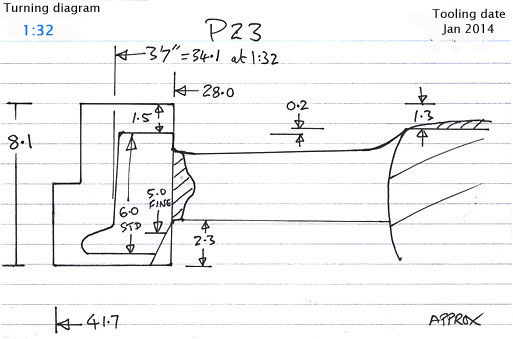 Turning diagram
Tooling date
1:32
P23
Jan 2014
3'7" = 34.1 at 1:32
28.0
1.5
0.2
1.3
8.1
5.0
FINE
6.0
STD
2.3
41.7
APPROX